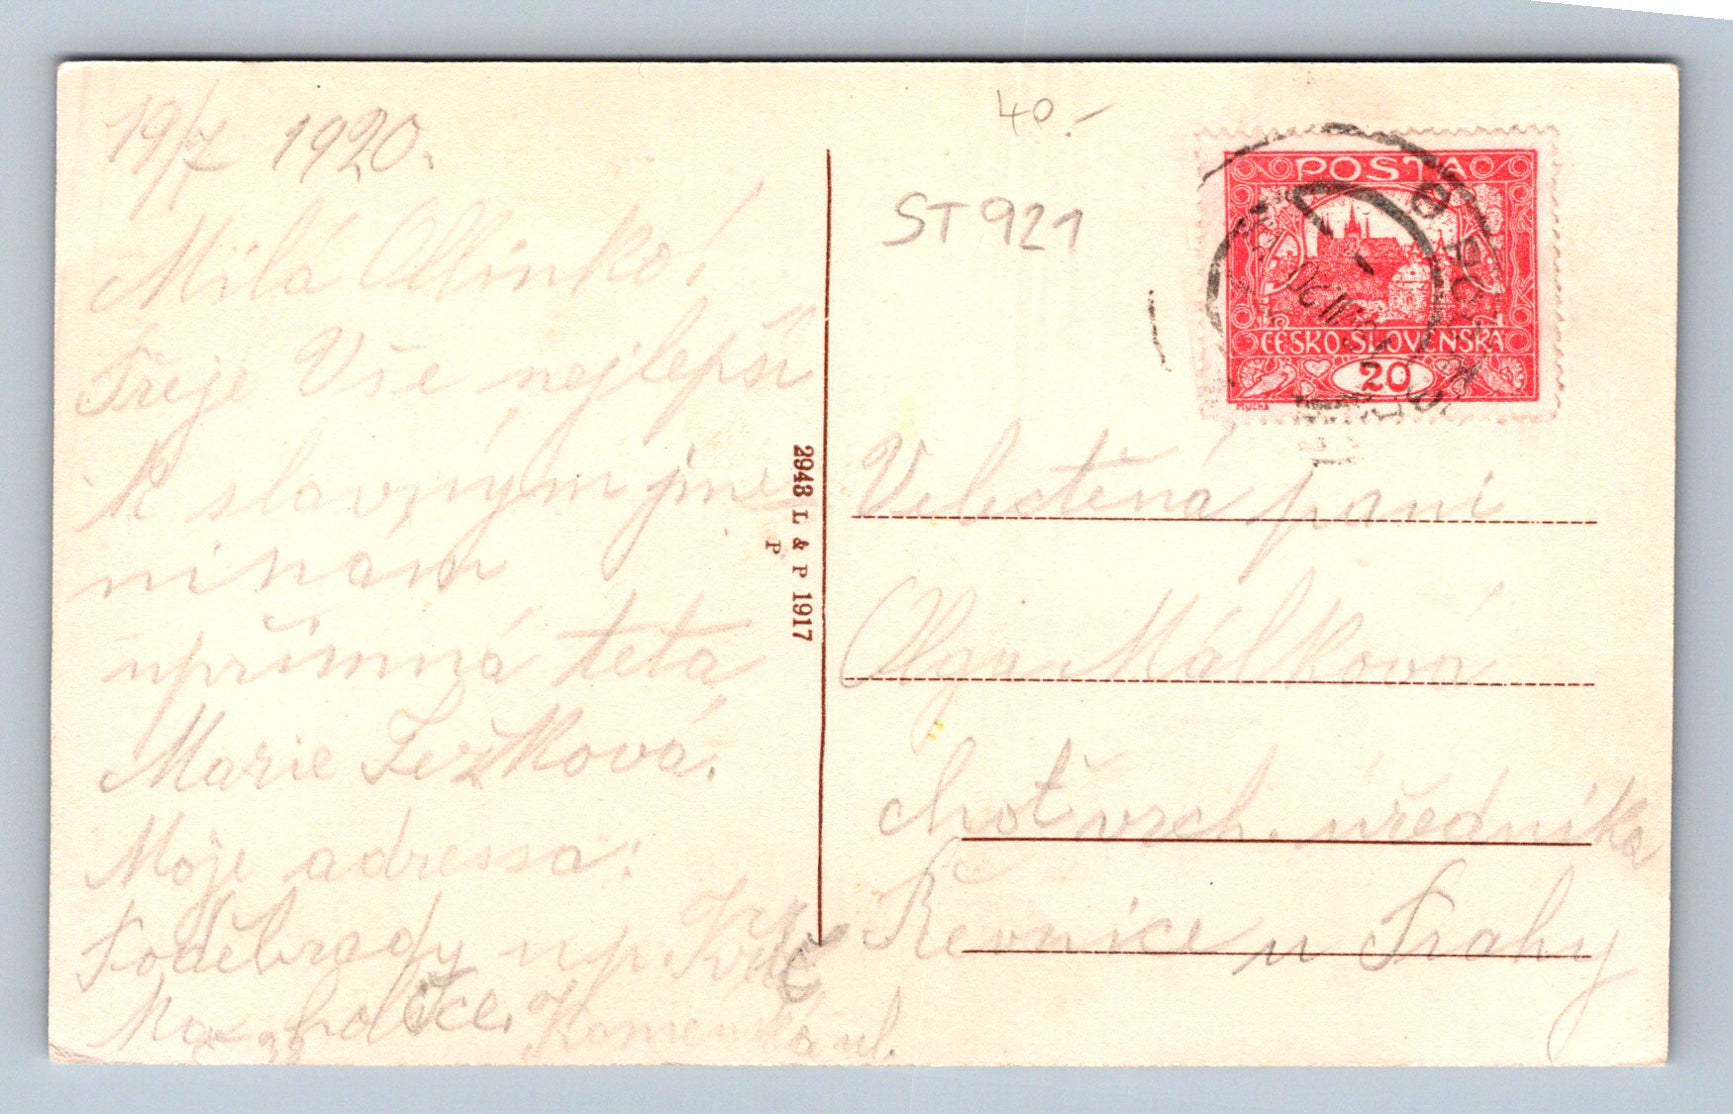 19/7 1920.
Milá Ollinko!
Přeje Vše nejlepší
K slavným jme
ninám
upřímná teta
Marie Ležková.
Moje adressa:
Poděbrady u p.
Komenská ul.
2943 L & P 1917
P
40.-
ST 921
POSTA
ČESKO-SLOVENSKÁ
20
MUCHA
Velectěná paní
Olga Málková
choť vrch. úředníka
Řevnice u Prahy